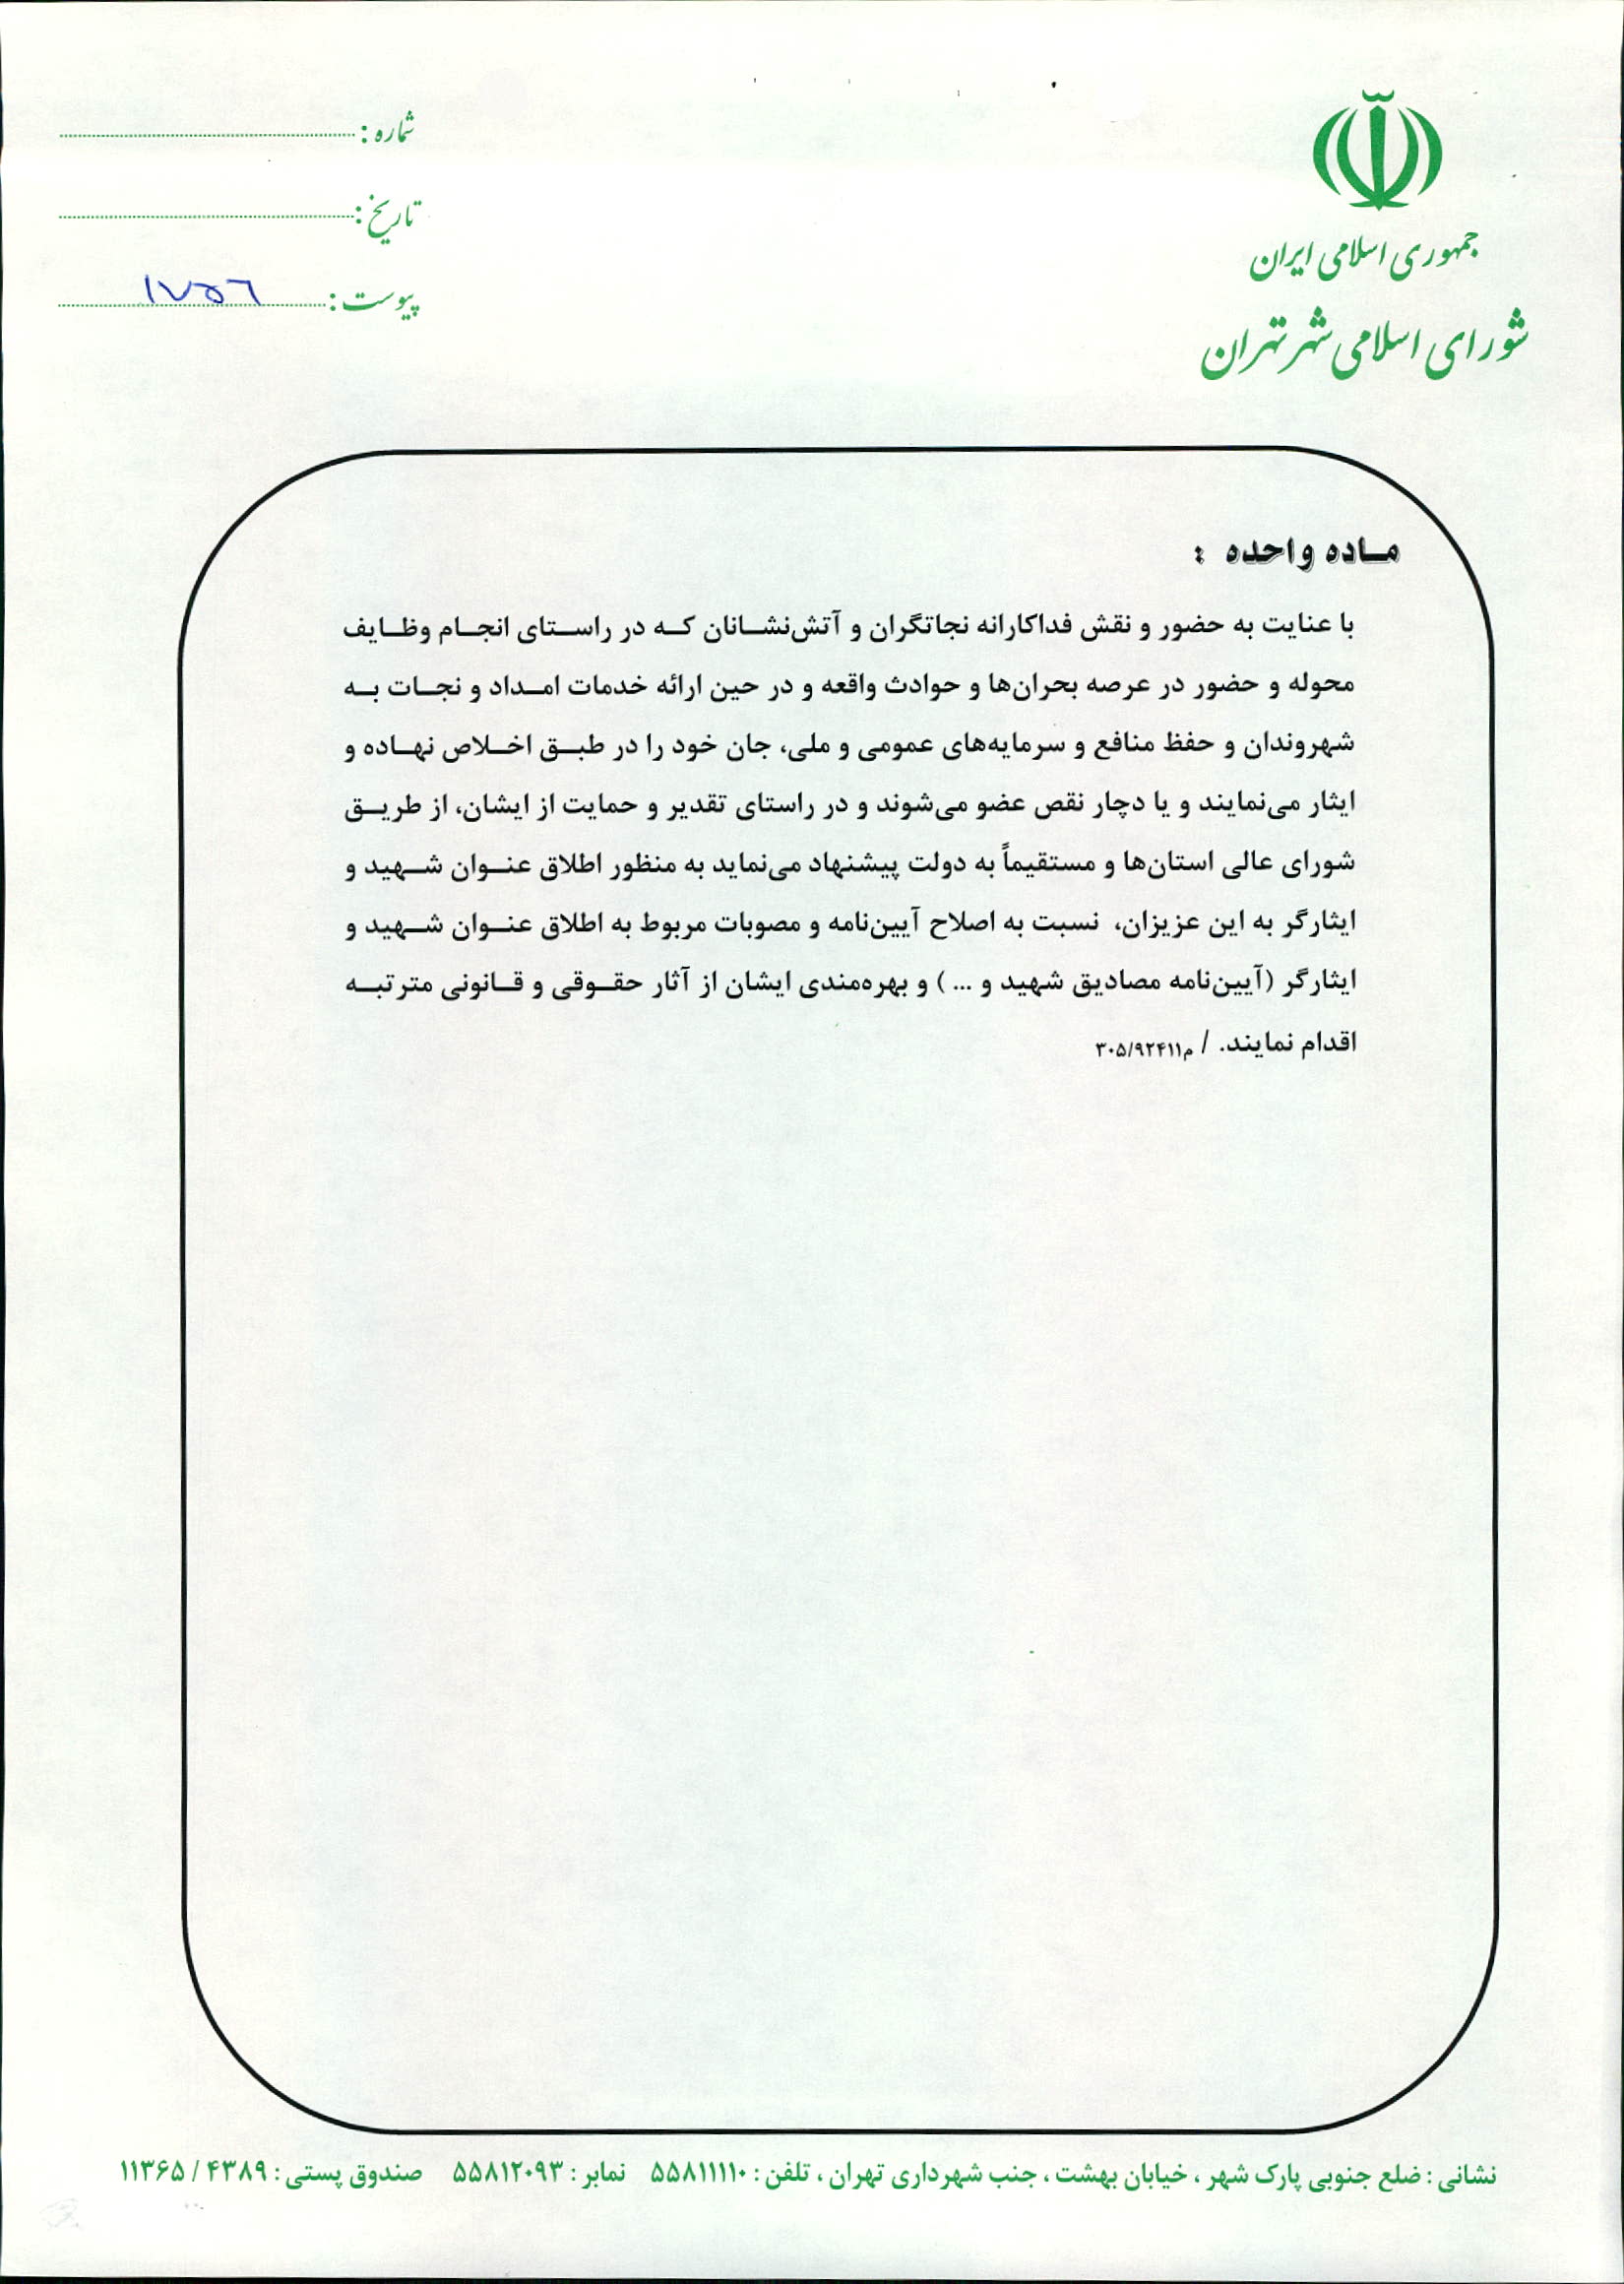 جمهوری اسلامی ایران
شورای اسلامی شهر تهران
شماره :
تاریخ :
پیوست : ۱۷۵۶
مـاده واحده :
با عنایت به حضور و نقش فداکارانه نجاتگران و آتش‌نشـانان کـه در راسـتای انجـام وظـایف
محوله و حضور در عرصه بحران‌ها و حوادث واقعه و در حین ارائه خدمات امـداد و نجـات بـه
شهروندان و حفظ منافع و سرمایه‌های عمومی و ملی، جان خود را در طبـق اخـلاص نهـاده و
ایثار می‌نمایند و یا دچار نقص عضو می‌شوند و در راستای تقدیر و حمایت از ایشان، از طریـق
شورای عالی استان‌ها و مستقیماً به دولت پیشنهاد می‌نماید به منظور اطلاق عنـوان شـهید و
ایثارگر به این عزیزان، نسبت به اصلاح آیین‌نامه و مصوبات مربوط به اطلاق عنـوان شـهید و
ایثارگر (آیین‌نامه مصادیق شهید و ... ) و بهره‌مندی ایشان از آثار حقـوقی و قـانونی مترتبـه
اقدام نمایند. / م۳۰۵/۹۲۴۱۱
نشانی : ضلع جنوبی پارک شهر ، خیابان بهشت ، جنب شهرداری تهران ، تلفن : ۵۵۸۱۱۱۱۰ نمابر : ۵۵۸۱۲۰۹۳ صندوق پستی : ۴۳۸۹ / ۱۱۳۶۵